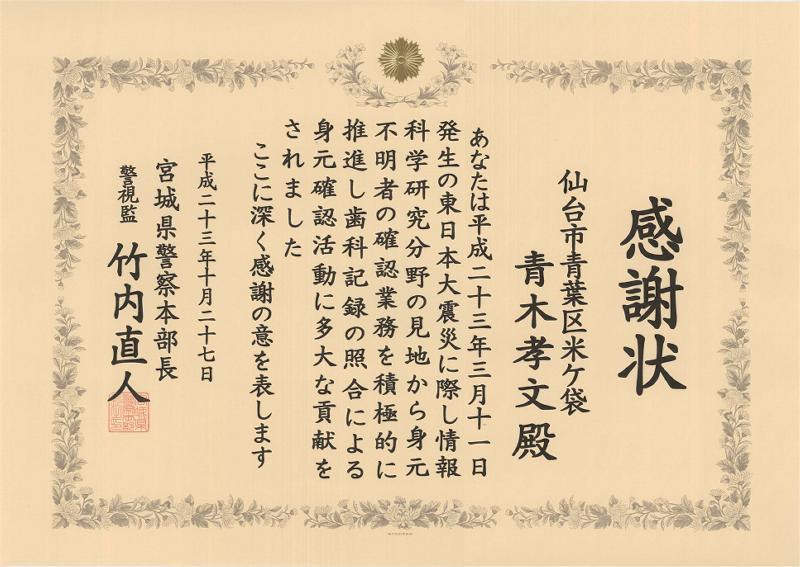 感謝状
仙台市青葉区米ケ袋
青木孝文殿
あなたは平成二十三年三月十一日
発生の東日本大震災に際し情報
科学研究分野の見地から身元
不明者の確認業務を積極的に
推進し歯科記録の照合による
身元確認活動に多大な貢献を
されました
ここに深く感謝の意を表します
平成二十三年十月二十七日
宮城県警察本部長
警視監 竹内直人